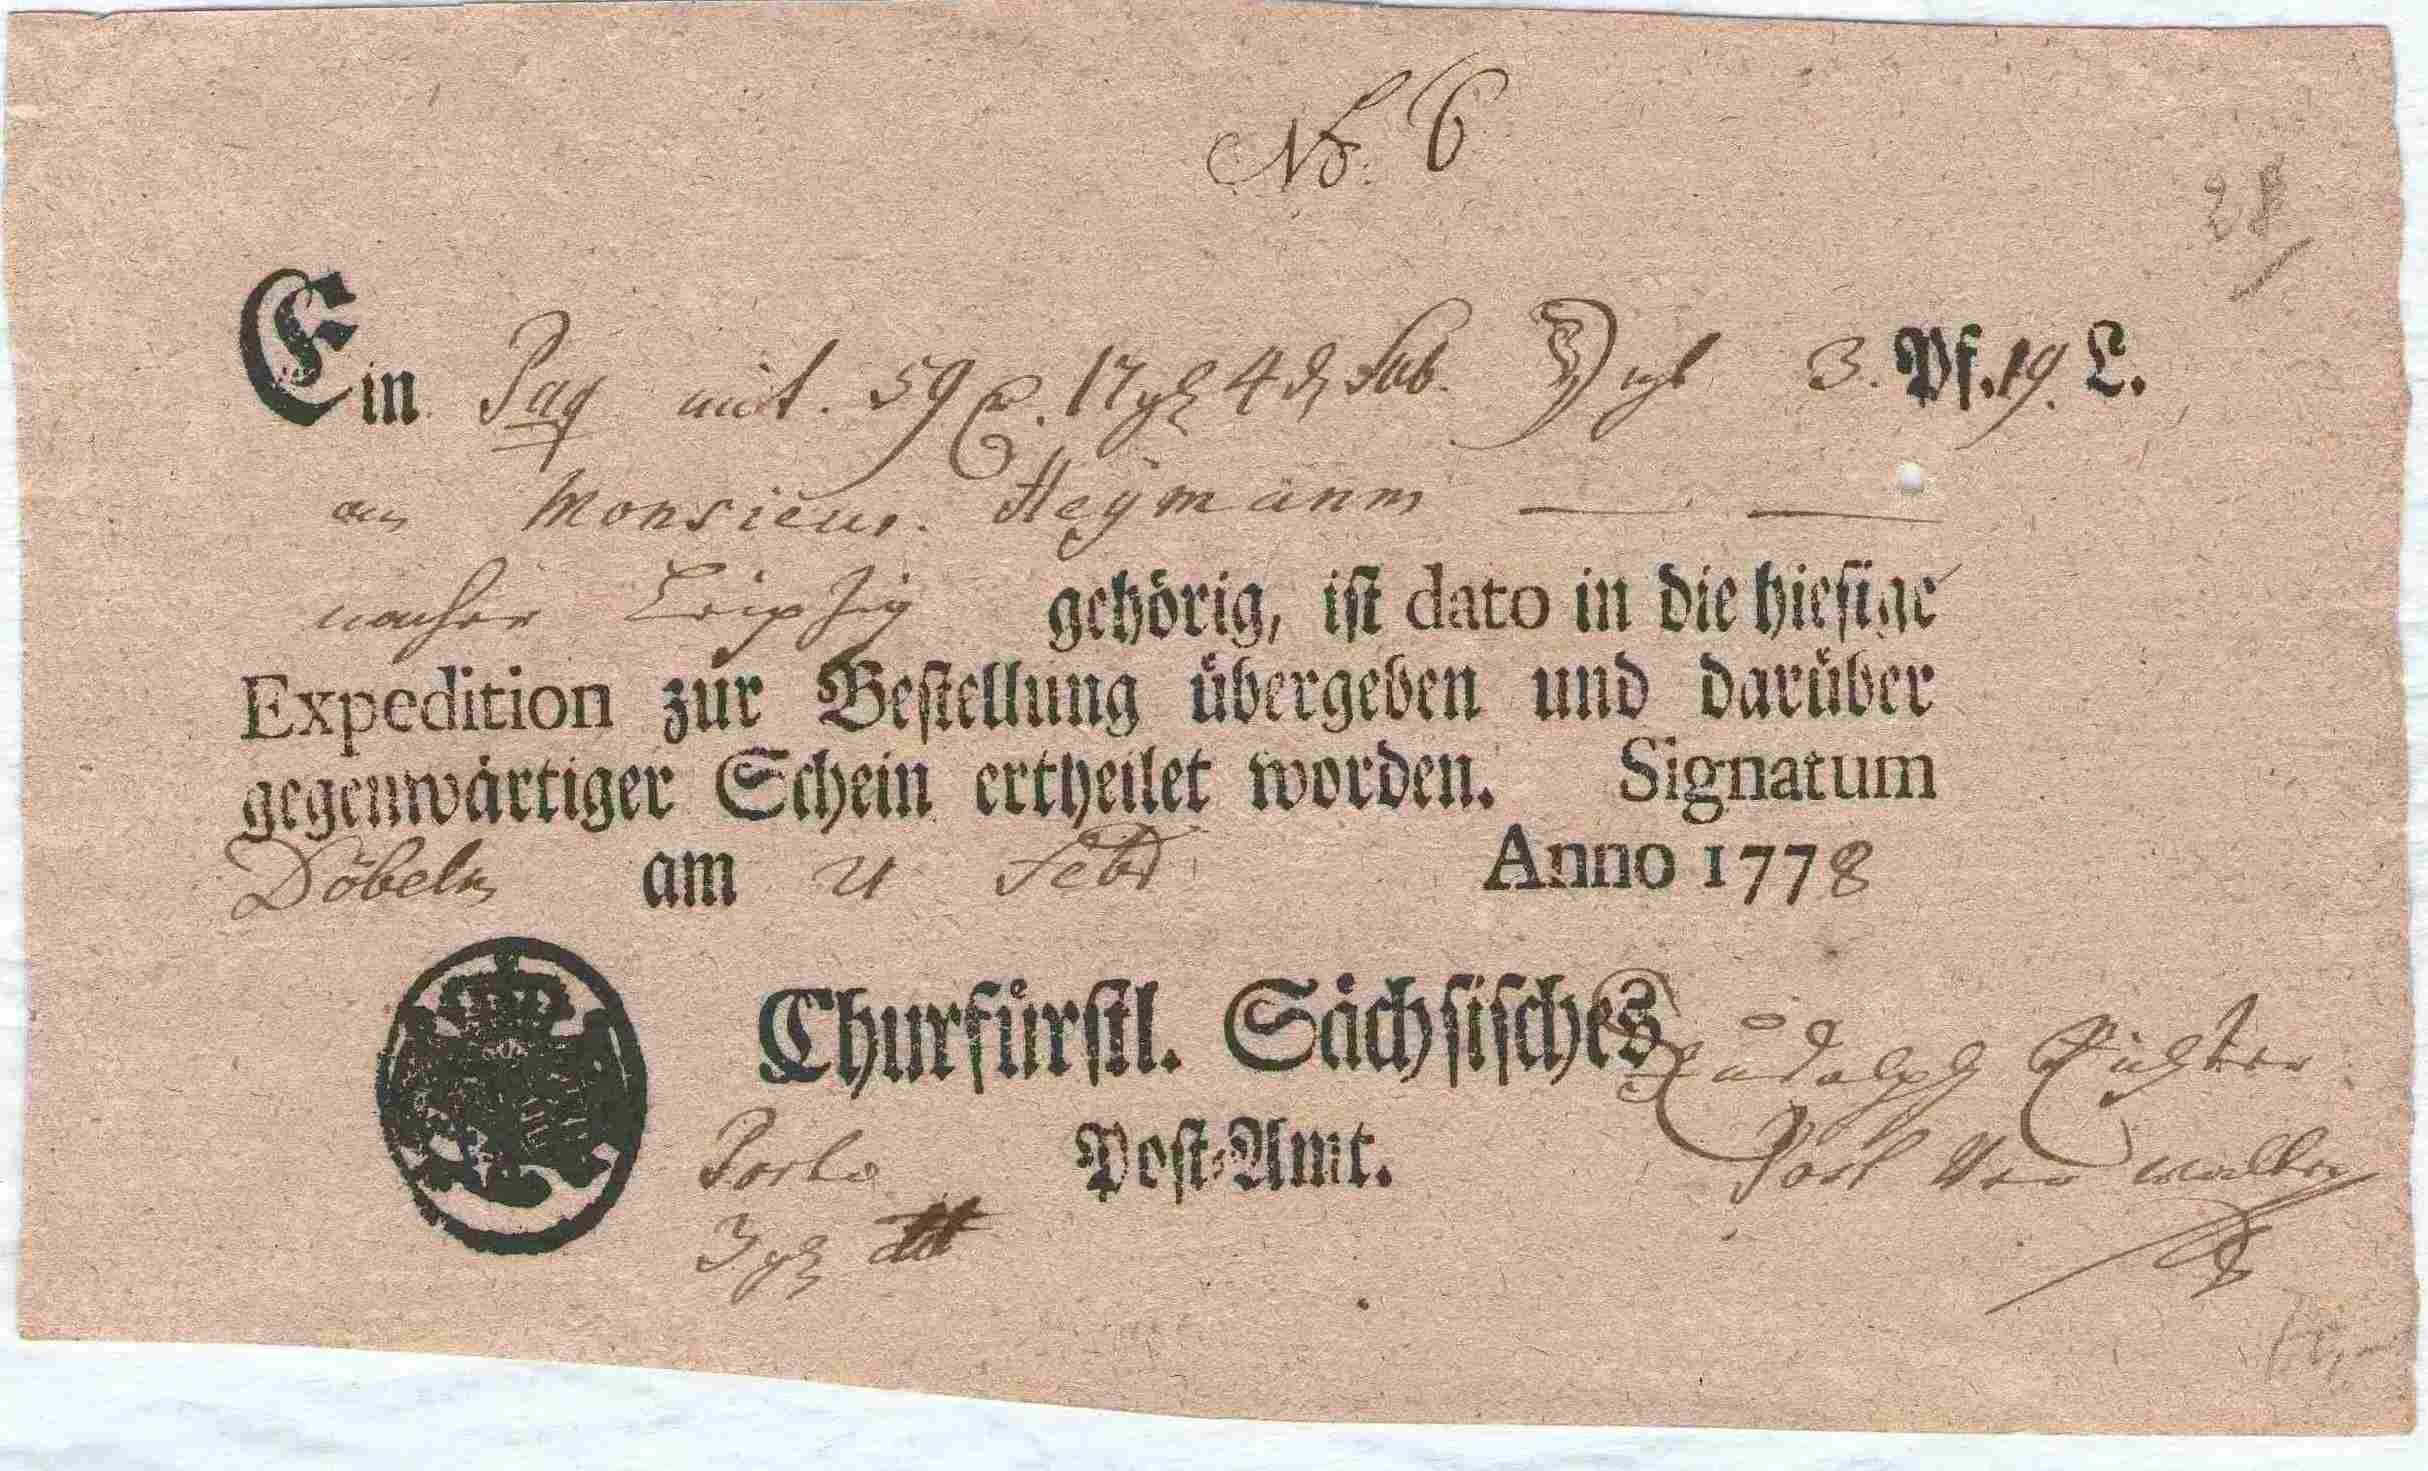 No. 6
28
Ein Paq mit 59 17 4 Sub. 3. Pf. 19. L.
an Monsieur. Heÿmann
nacher Leipzig gehörig, ist dato in die hiesige
Expedition zur Bestellung übergeben und darüber
gegenwärtiger Schein ertheilet worden. Signatum
Döbeln am 4 Febr Anno 1778
Churfürstl. Sächsisches
Rudolph Richter
Porto Post-Amt. Post Verwalter
3 gl